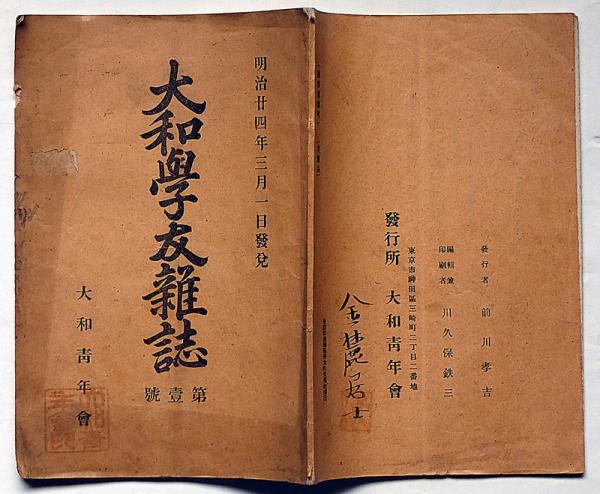 明治廿四年三月一日發兌
大和學友雜誌
第壹號
大和靑年會
發行者 前川孝吉
編輯兼印刷者 川久保鉄三
東京市神田區三崎町二丁目二番地
發行所 大和靑年會